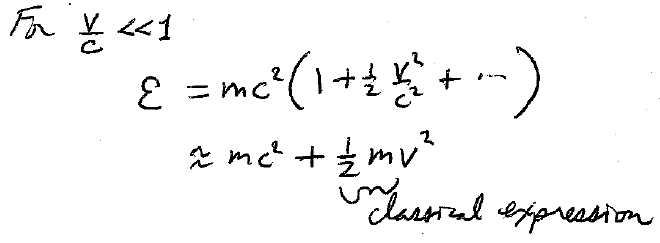 For v/c <<1
ℰ = mc²(1 + 1/2 v²/c² + ⋯)
≈ mc² + 1/2 mv²
classical expression